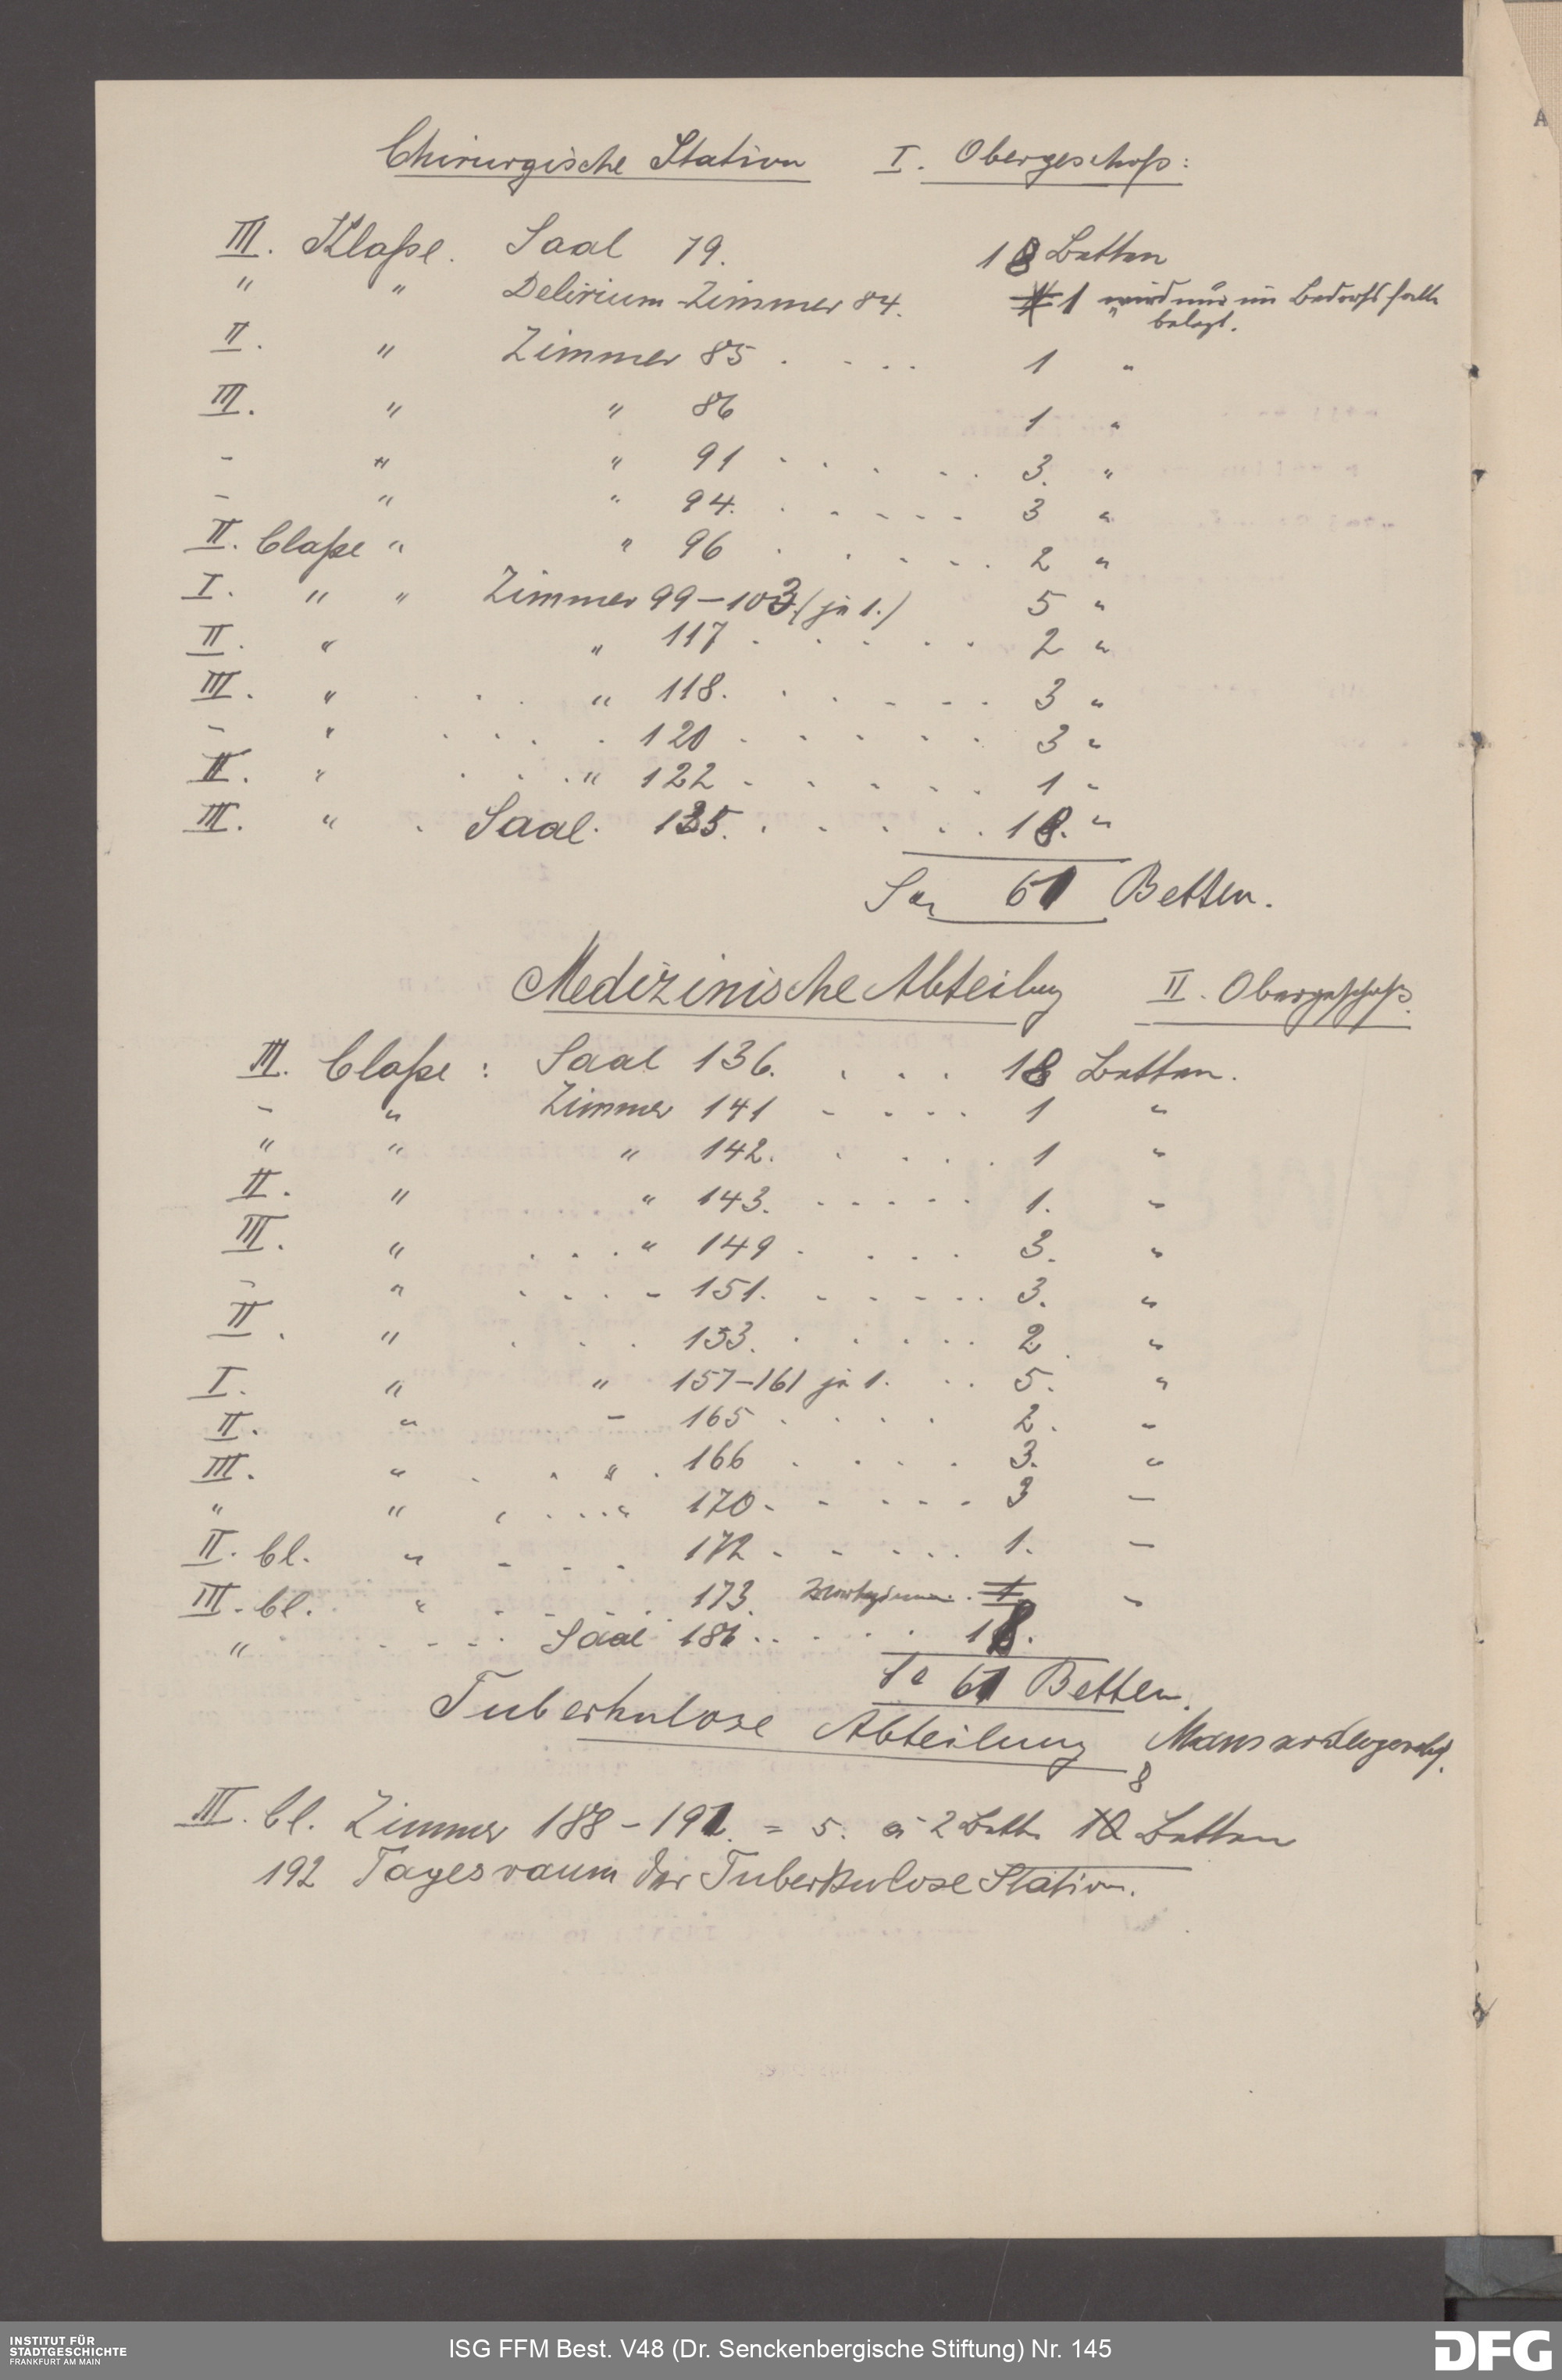 Chirurgische Station I. Obergeschoß:
III. Klaße. Saal 79. 18 Betten
" " Delirium-Zimmer 84. 1 " wird nur im Bedarfsfalle
belegt.
II. " Zimmer 85 . . . . 1 "
III. " " 86 1 "
- " " 91 . . . . . 3. "
- " " 94. . . . . . 3 "
II. Claße " " 96 . . . . . 2 "
I. " " Zimmer 99-103 (je 1.) 5 "
II. " " 117 . . . . . 2 "
III. " . . " 118. . . . . . 3 "
- " . . . . 120 . . . . . 3 "
II. " . . . " 122 . . . . . 1 "
III. " . Saal. 135. . . . . . 18. "
Sa 61 Betten.
Medizinische Abteilung II. Obergeschoß.
III. Claße : Saal 136. . . . 18 Betten.
- " Zimmer 141 . . . . 1 "
" " " 142. . . . . 1 "
II. " " 143. . . . . . 1. "
III. " . . . " 149 . . . . 3. "
- " . . . - 151. . . . . . 3. "
II. " . . . 153. . . . . . 2. "
I. " " 157-161 je 1. . . 5. "
II. " - 165 . . . . 2. "
III. " . . " . 166 . . . . 3. "
" " . . . . " 170 . . . . . 3 -
II. Cl. " - - - 172 . . . . . 1. -
III. Cl. " . . . . 173. 1 "
" . . . . Saal 186 . . . . . 18.
Sa 61 Betten.
Tuberkulose Abteilung Mansardengeschoß.
8
III. Cl. Zimmer 188-191. = 5. à 2 Bett. 10 Betten
192 Tagesraum der Tuberkulose Station.
INSTITUT FÜR
STADTGESCHICHTE
FRANKFURT AM MAIN
ISG FFM Best. V48 (Dr. Senckenbergische Stiftung) Nr. 145
DFG